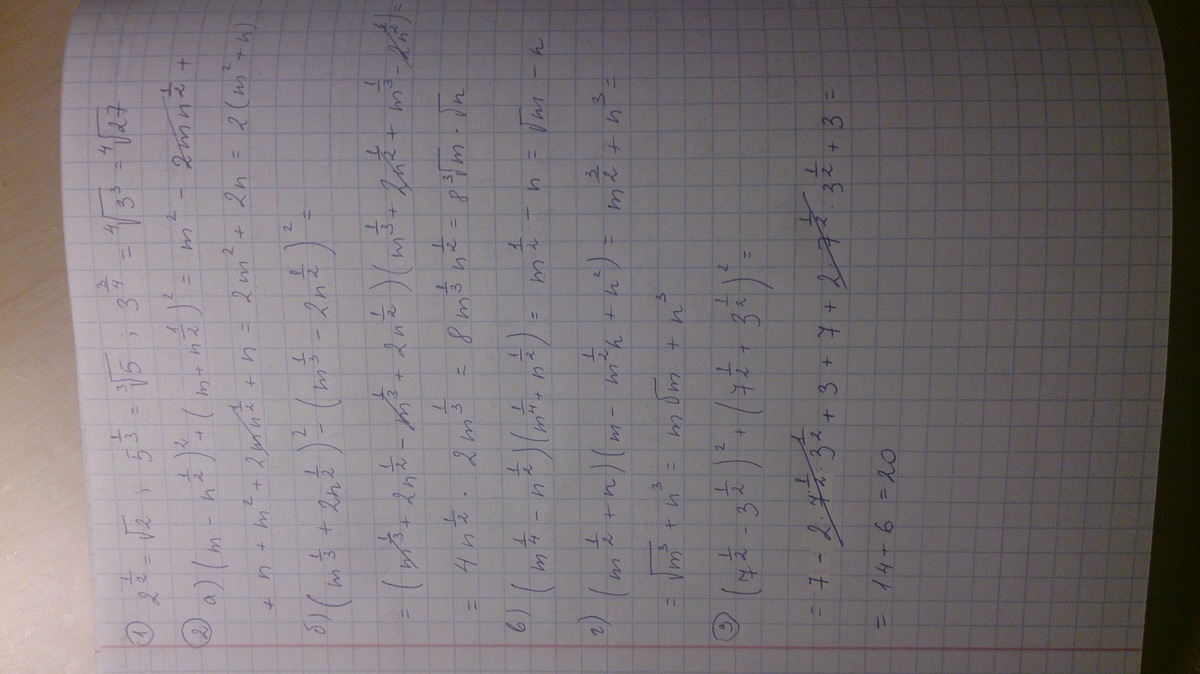 ① 2^{1/2} = √2 ; 5^{1/3} = ∛5 ; 3^{3/4} = ⁴√3³ = ⁴√27
② а) (m − n^{1/2})² + (m + n^{1/2})² = m² − 2mn^{1/2} +
+ n + m² + 2mn^{1/2} + n = 2m² + 2n = 2(m² + n)
б) (m^{1/3} + 2n^{1/2})² − (m^{1/3} − 2n^{1/2})² =
= (m^{1/3} + 2n^{1/2} − m^{1/3} + 2n^{1/2})(m^{1/3} + 2n^{1/2} + m^{1/3} − 2n^{1/2}) =
= 4n^{1/2} · 2m^{1/3} = 8m^{1/3}n^{1/2} = 8∛m · √n
в) (m^{1/4} − n^{1/2})(m^{1/4} + n^{1/2}) = m^{1/2} − n = √m − n
г) (m^{1/2} + n)(m − m^{1/2}n + n²) = m^{3/2} + n³ =
= √m³ + n³ = m√m + n³
③ (7^{1/2} − 3^{1/2})² + (7^{1/2} + 3^{1/2})² =
= 7 − 2·7^{1/2}·3^{1/2} + 3 + 7 + 2·7^{1/2}·3^{1/2} + 3 =
= 14 + 6 = 20